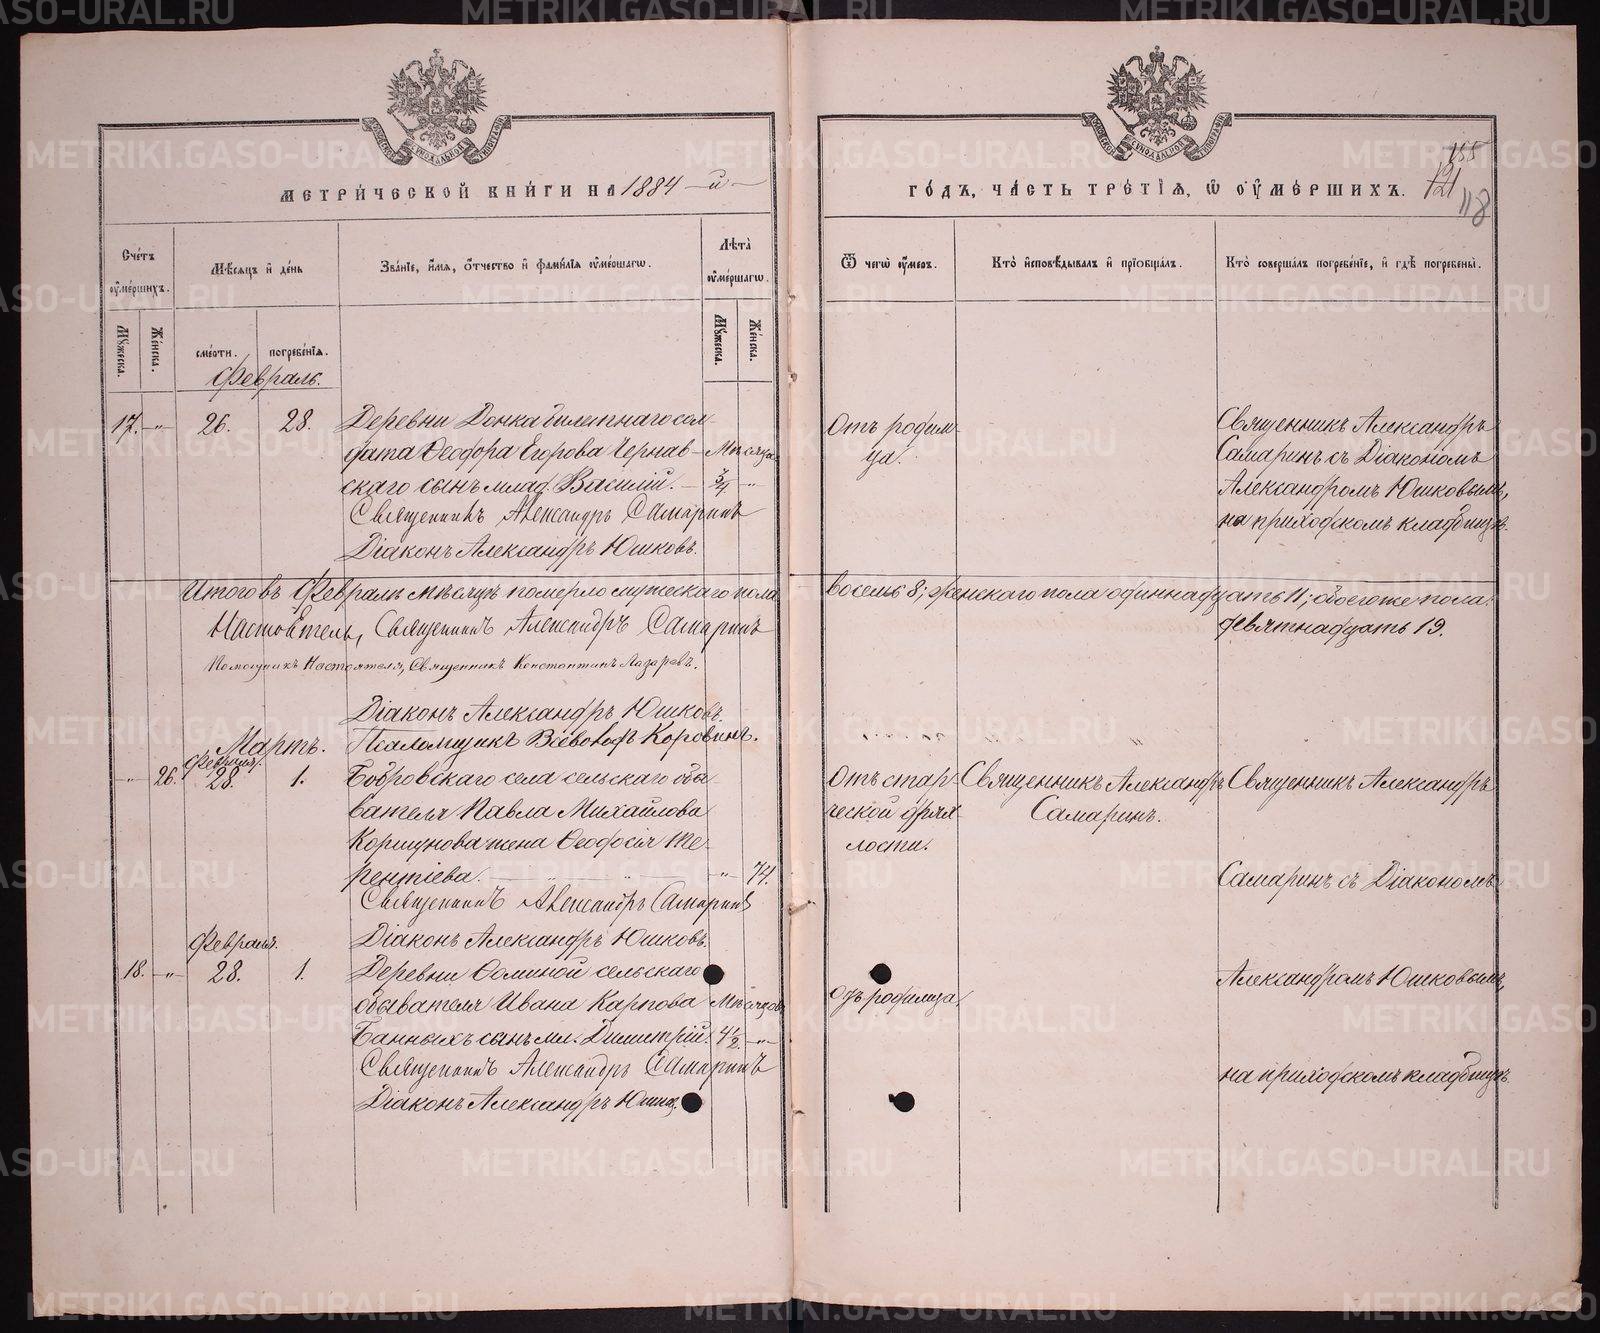 МЕТРИ́ЧЕСКОЙ КНИ́ГИ НА 1884 -й-
ГО́ДЪ, ЧА́СТЬ ТРЕ́ТІЯ, Ѿ ОУ҆МЕ́РШИХЪ.
155
121
118
Сче́тъ оу҆ме́ршихъ.
Мѣ́сяцъ и҆ де́нь
Зва́нїе, и҆́мя, ѻ҆́тчество и҆ фами́лїя оу҆ме́ршагѡ.
Лѣ́та оу҆ме́ршагѡ.
Ѿ чегѡ̀ оу҆́меръ.
Кто̀ и҆сповѣ́дывалъ и҆ прїѡбща́лъ.
Кто̀ соверша́лъ погребе́нїе, и҆ гдѣ̀ погребены̀.
Мꙋ́жеска.
Же́нска.
сме́рти.
погребе́нїя.
Мꙋ́жеска.
Же́нска.
Февраль.
17. -„- 26. 28. Деревни Донка билетнаго сол-
дата Ѳеодора Егорова Чернав- Мѣсяца
скаго сынъ млад. Василій. - 3/4 -„-
Священникъ Александръ Самаринъ
Діаконъ Александръ Юшковъ.
Отъ родим-
ца.
Священникъ Александръ
Самаринъ съ Діакономъ
Александромъ Юшковымъ,
на приходскомъ кладбищѣ.
Итого въ Февралѣ мѣсяцѣ померло мужескаго пола
восемь 8; женскаго пола одиннадцать 11; обоего же пола
девятнадцать 19.
Настоятель, Священникъ Александръ Самаринъ
Помощникъ Настоятеля, Священникъ Константинъ Лазаревъ.
Діаконъ Александръ Юшковъ.
Псаломщикъ Всеволодъ Коровинъ.
Мартъ.
Февраля.
„ 26. 28. 1. Бобровскаго села сельскаго обы-
вателя Павла Михайлова
Коршунова жена Ѳеодосія Те-
рентіева. -„- 74.
Священникъ Александръ Самаринъ
Діаконъ Александръ Юшковъ.
Отъ стар-
ческой дрях-
лости.
Священникъ Александръ
Самаринъ.
Священникъ Александръ
Самаринъ съ Діакономъ
Февраля.
18. -„- 28. 1. Деревни Ѳоминой сельскаго
обывателя Ивана Карпова Мѣсяцовъ
Банныхъ сынъ мл. Димитрій. 4 1/2. -„-
Священникъ Александръ Самаринъ
Діаконъ Александръ
Отъ родимца.
Александромъ Юшковымъ,
на приходскомъ кладбищѣ.
METRIKI.GASO-URAL.RU